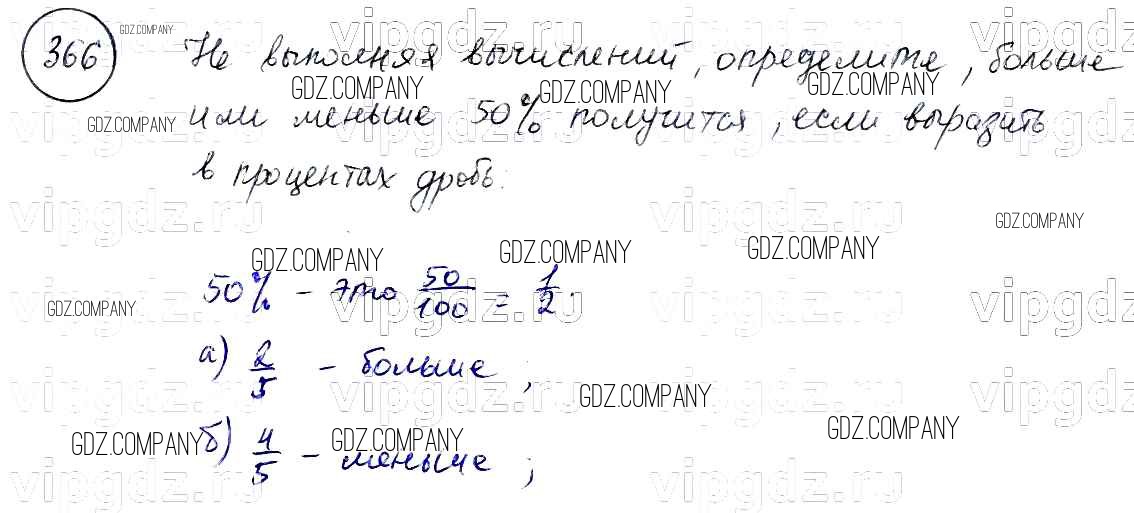 366 Не выполняя вычислений, определите, больше
или меньше 50% получится, если выразить
в процентах дробь:
50% - это 50/100 = 1/2.
а) 2/5 - больше ;
б) 4/5 - меньше ;
GDZ.COMPANY
GDZ.COMPANY
GDZ.COMPANY
GDZ.COMPANY
GDZ.COMPANY
GDZ.COMPANY
GDZ.COMPANY
GDZ.COMPANY
GDZ.COMPANY
GDZ.COMPANY
GDZ.COMPANY
GDZ.COMPANY
GDZ.COMPANY
GDZ.COMPANY
vipgdz.ru
vipgdz.ru
vipgdz.ru
vipgdz.ru
vipgdz.ru
vipgdz.ru
vipgdz.ru
vipgdz.ru